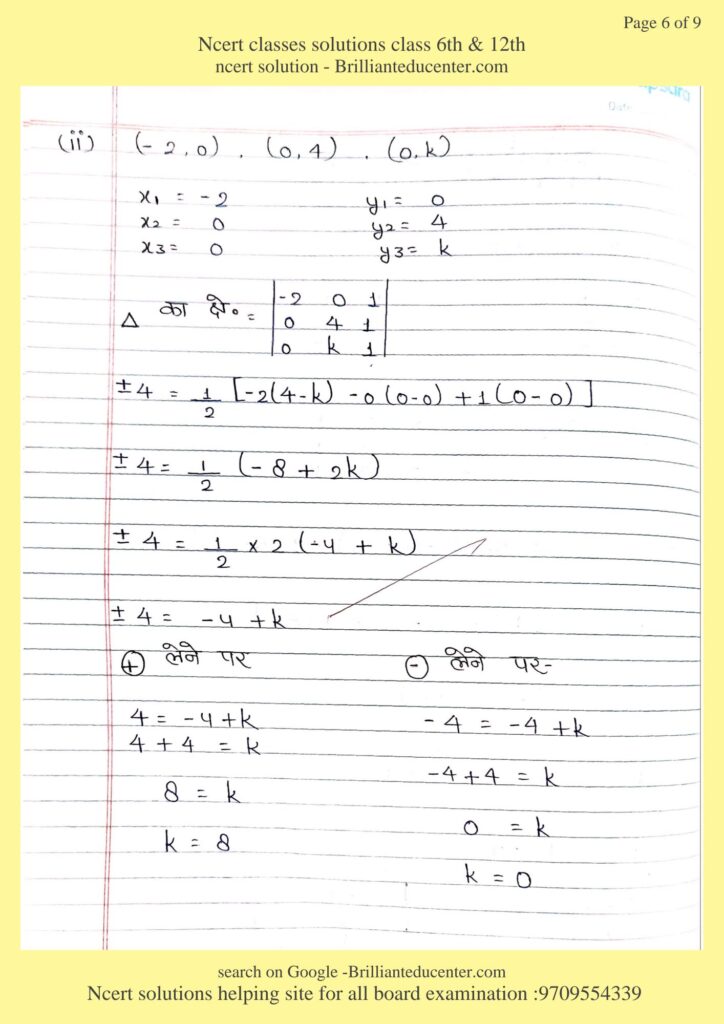 Page 6 of 9
Ncert classes solutions class 6th & 12th
ncert solution - Brillianteducenter.com
Date
(ii) (-2,0) , (0,4) , (0,k)
x₁ = -2 y₁ = 0
x₂ = 0 y₂ = 4
x₃ = 0 y₃ = k
Δ का क्षे० = |-2 0 1|
|0 4 1|
|0 k 1|
±4 = 1/2 [-2(4-k) -0(0-0) +1(0-0)]
±4 = 1/2 (-8 + 2k)
±4 = 1/2 × 2 (-4 + k)
±4 = -4 + k
(+) लेने पर (-) लेने पर-
4 = -4+k -4 = -4+k
4+4 = k -4+4 = k
8 = k 0 = k
k = 8 k = 0
search on Google -Brillianteducenter.com
Ncert solutions helping site for all board examination :9709554339